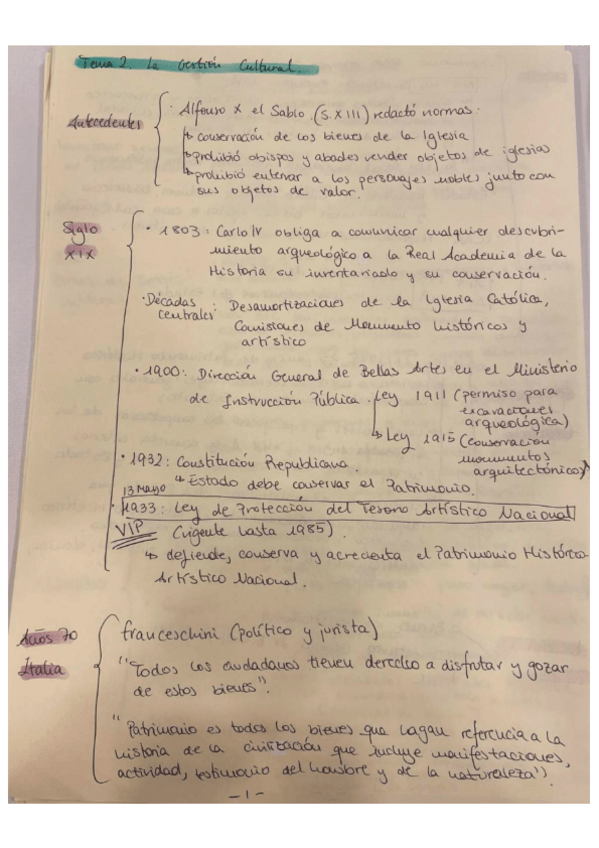 Tema 2. La Gestión Cultural.
Antecedentes
· Alfonso X el Sabio. (S. XIII) redactó normas:
↳ conservación de los bienes de la Iglesia
↳ prohibió obispos y abades vender objetos de iglesias
↳ prohibió enterrar a los personajes nobles junto con
sus objetos de valor.
Siglo
XIX
· 1803: Carlo IV obliga a comunicar cualquier descubri-
miento arqueológico a la Real Academia de la
Historia su inventariado y su conservación.
· Décadas centrales: Desamortizaciones de la Iglesia Católica,
Comisiones de Monumento históricos y
artístico
· 1900: Dirección General de Bellas Artes en el Ministerio
de Instrucción Pública. Ley 1911 (permiso para
excavaciones
arqueológica)
↳ Ley 1915 (conservación
monumentos
arquitectónicos)
· 1932: Constitución Republicana.
↳ Estado debe conservar el Patrimonio.
13 Mayo
· 1933: Ley de Protección del Tesoro Artístico Nacional
VIP (vigente hasta 1985).
↳ defiende, conserva y acrecienta el Patrimonio Histórico-
Artístico Nacional.
Años 70
Italia
franceschini (político y jurista)
"Todos los ciudadanos tienen derecho a disfrutar y gozar
de estos bienes".
"Patrimonio es todos los bienes que hagan referencia a la
historia de la civilización que incluye manifestaciones,
actividad, testimonio del hombre y de la naturaleza")
- 1 -